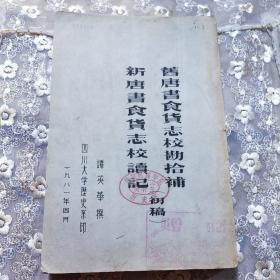 舊唐書食貨志校勘拾補(初稿)
新唐書食貨志校讀記
譚英華撰
四川大学歷史系印
一九八一年四月